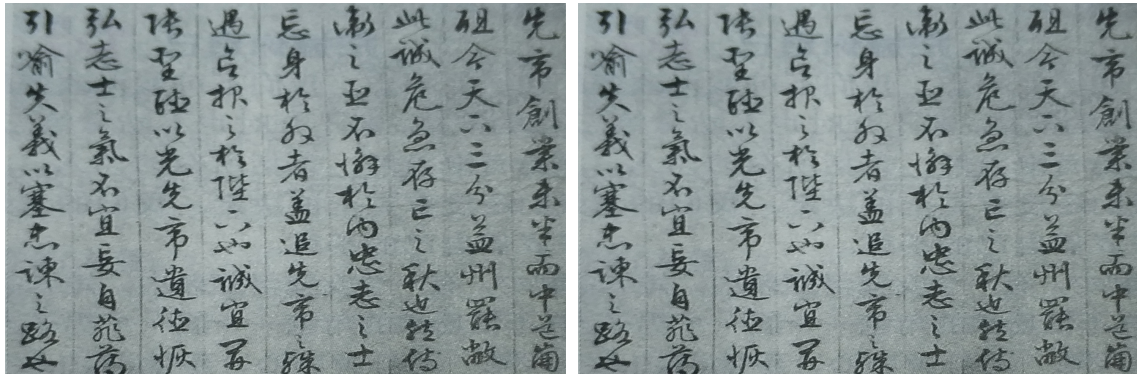 先帝創業未半而中道崩
殂今天下三分益州罷敝
此誠危急存亡之秋也然侍
衛之臣不懈於内忠志之士
忘身於外者盖追先帝之殊
遇欲報之於陛下也誠宜開
張聖聽以光先帝遺德恢
弘志士之氣不宜妄自菲薄
引喻失義以塞忠諫之路也
先帝創業未半而中道崩
殂今天下三分益州罷敝
此誠危急存亡之秋也然侍
衛之臣不懈於内忠志之士
忘身於外者盖追先帝之殊
遇欲報之於陛下也誠宜開
張聖聽以光先帝遺德恢
弘志士之氣不宜妄自菲薄
引喻失義以塞忠諫之路也